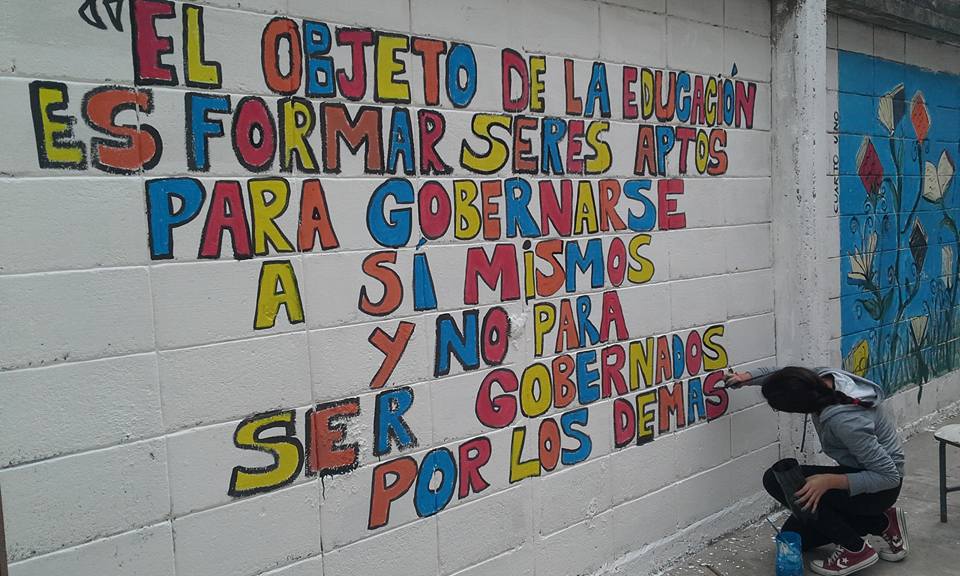 "EL OBJETO DE LA EDUCACIÓN
ES FORMAR SERES APTOS
PARA GOBERNARSE
A SÍ MISMOS
Y NO PARA
SER GOBERNADOS
POR LOS DEMAS
CUARTO UNO